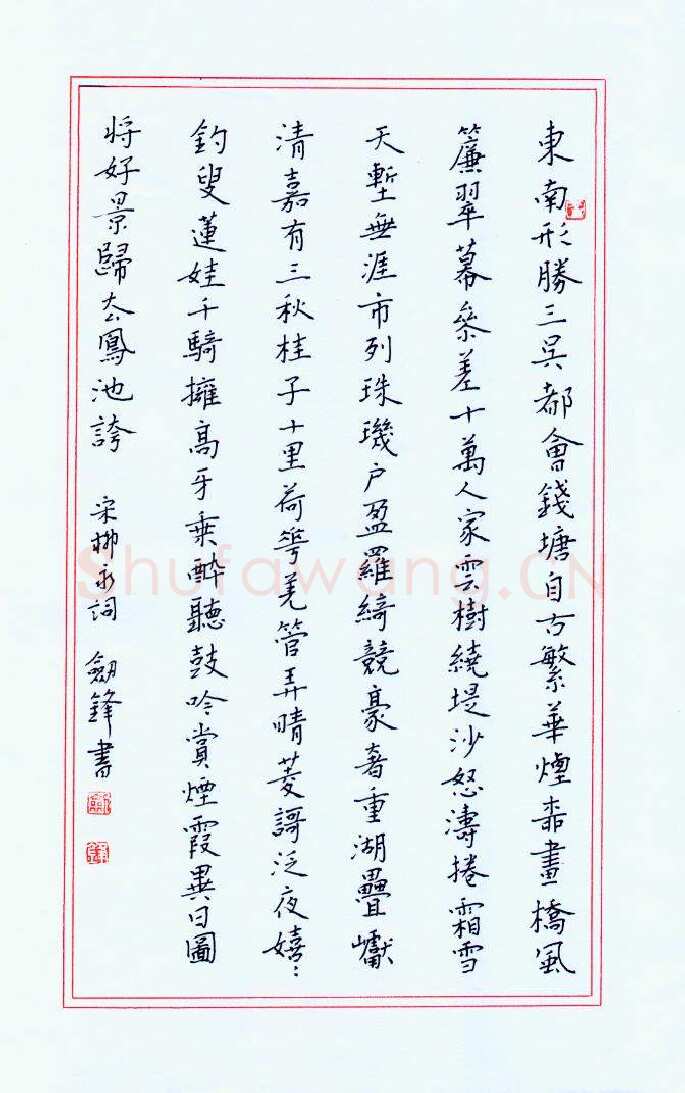 東南形勝三吳都會錢塘自古繁華煙柳畫橋風
簾翠幕參差十萬人家雲樹繞堤沙怒濤捲霜雪
天塹無涯市列珠璣戶盈羅綺競豪奢重湖疊巘
清嘉有三秋桂子十里荷花羌管弄晴菱謌泛夜嬉:
釣叟蓮娃千騎擁高牙乘醉聽鼓吟賞煙霞異日圖
將好景歸去鳳池誇 宋柳永詞 劍鋒書
Shufawang.CN